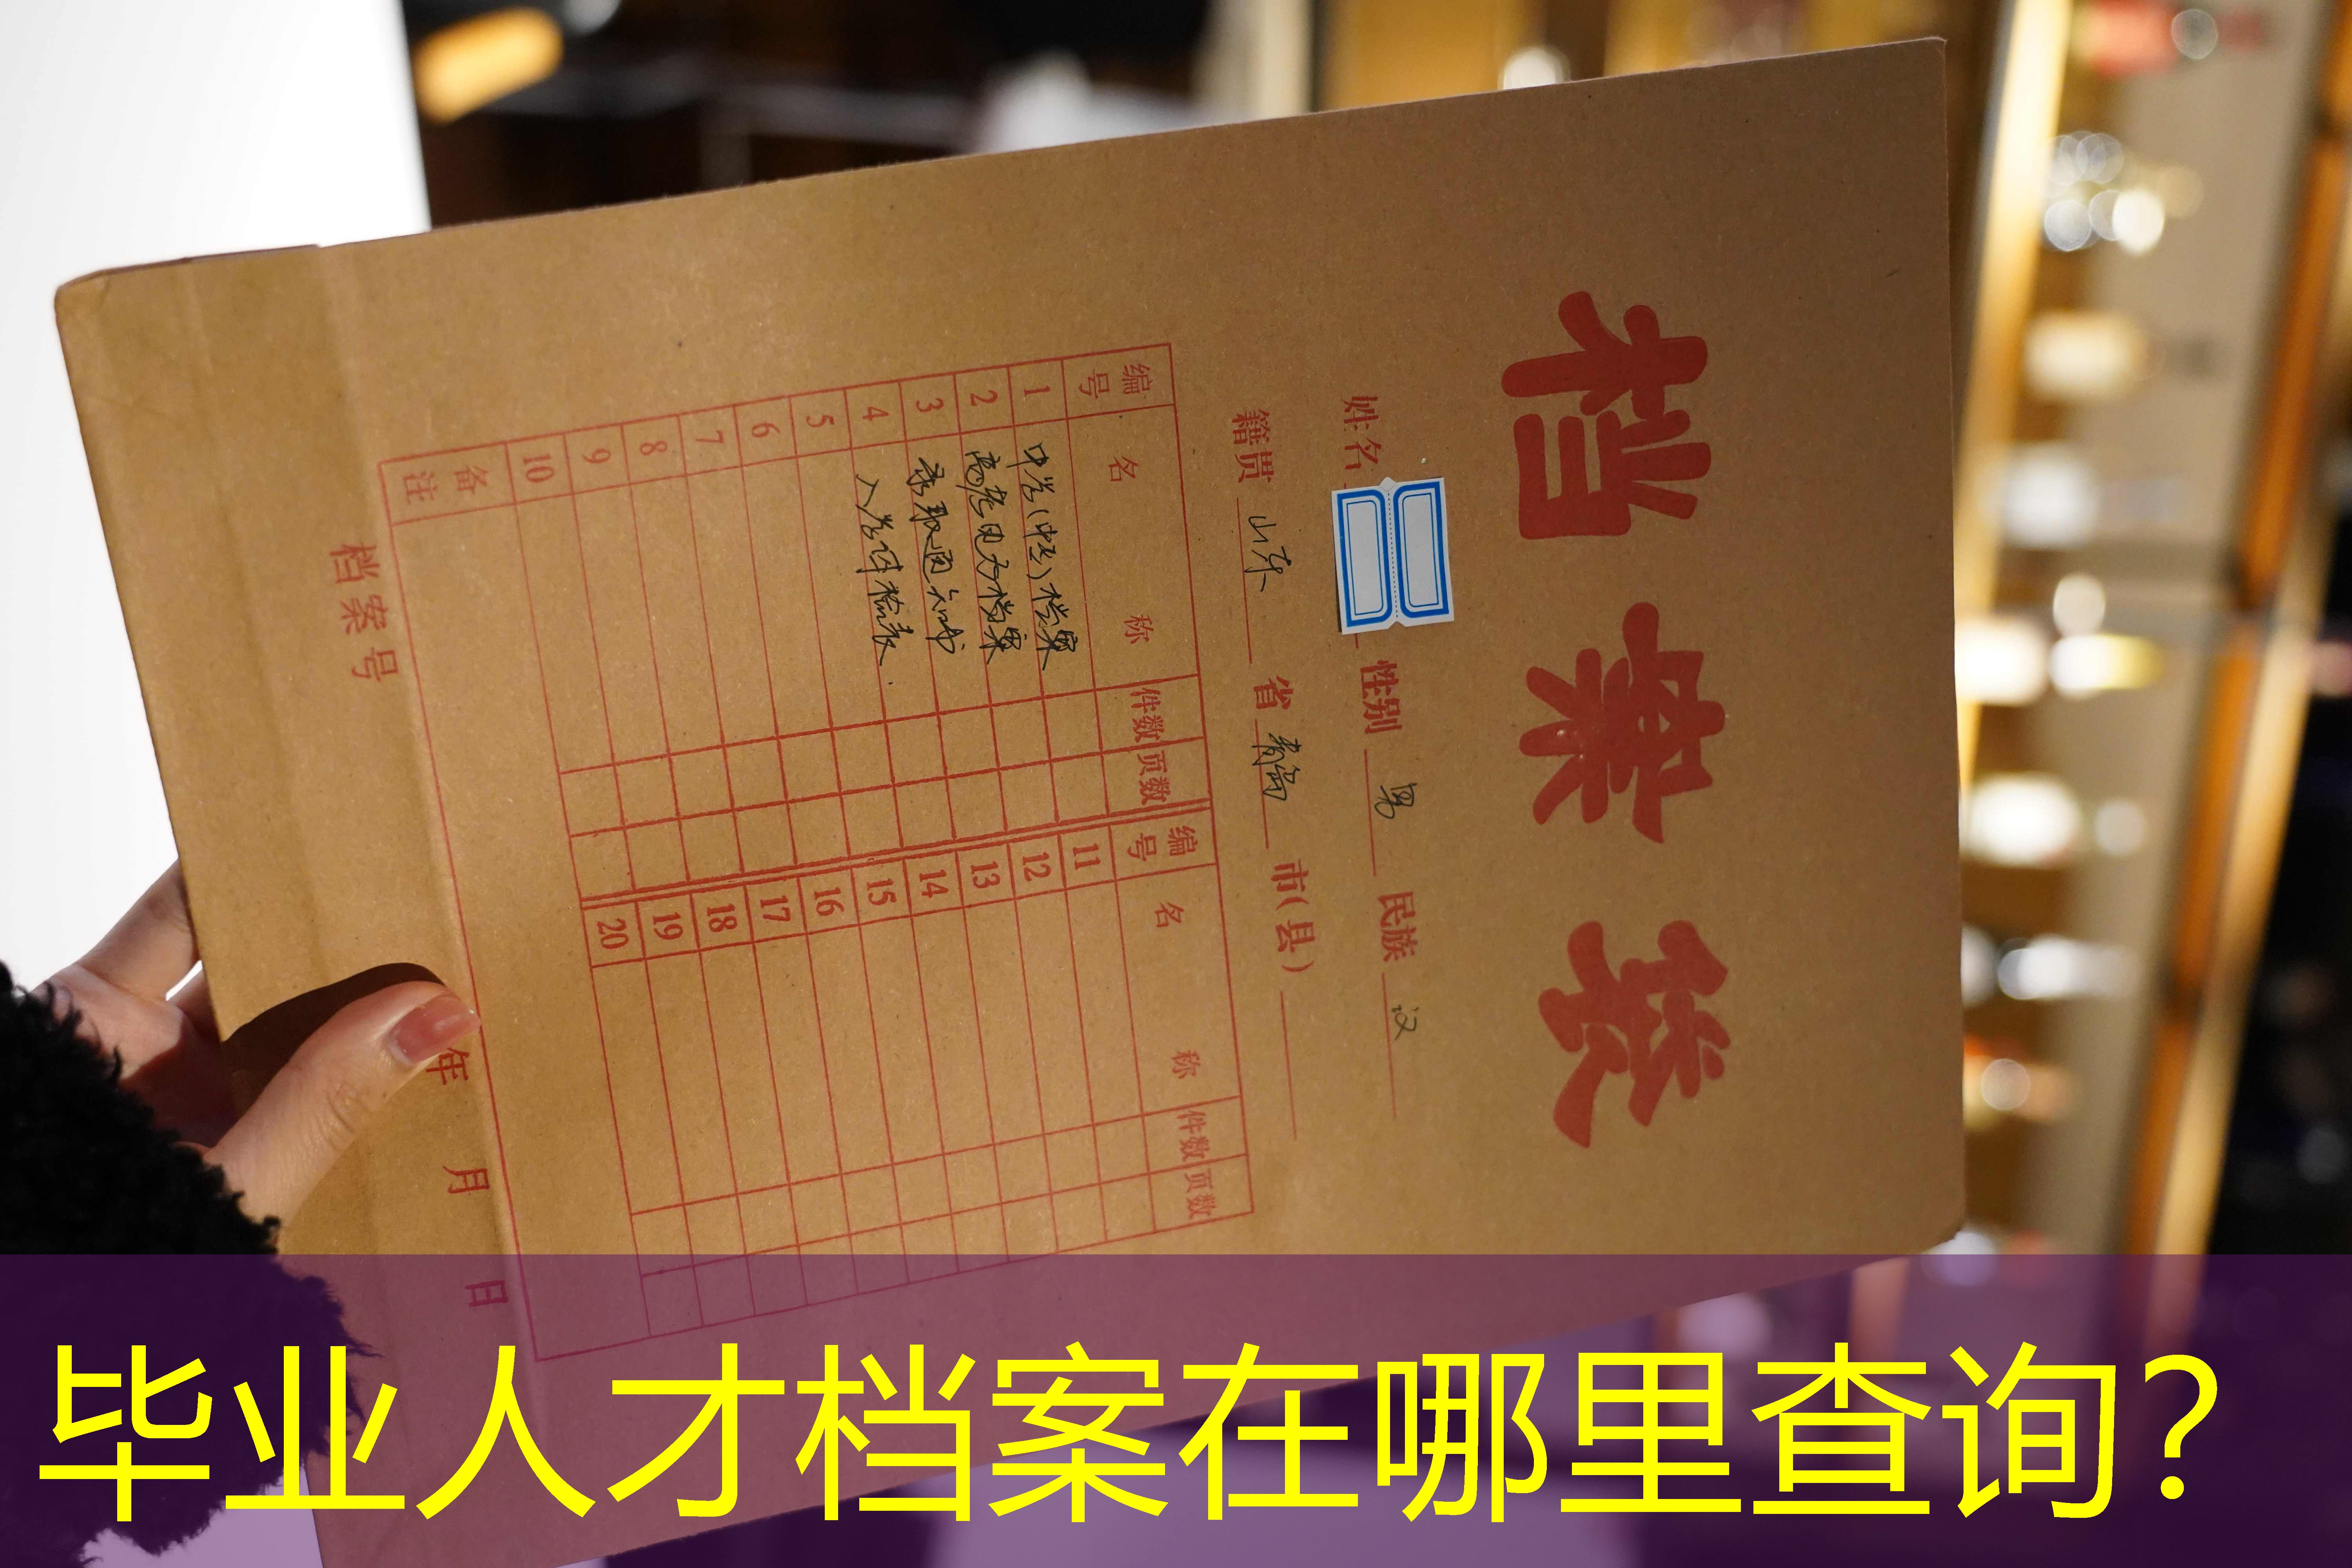 档案袋
姓名 性别 男 民族 汉
籍贯 山东 省 青岛 市(县)
编号 名称 件数 页数 编号 名称 件数 页数
1 中学(中专)档案 11
2 高考电子档案 12
3 录取通知书 13
4 入学体检表 14
5 15
6 16
7 17
8 18
9 19
10 20
备注
档案号 年 月 日
毕业人才档案在哪里查询？